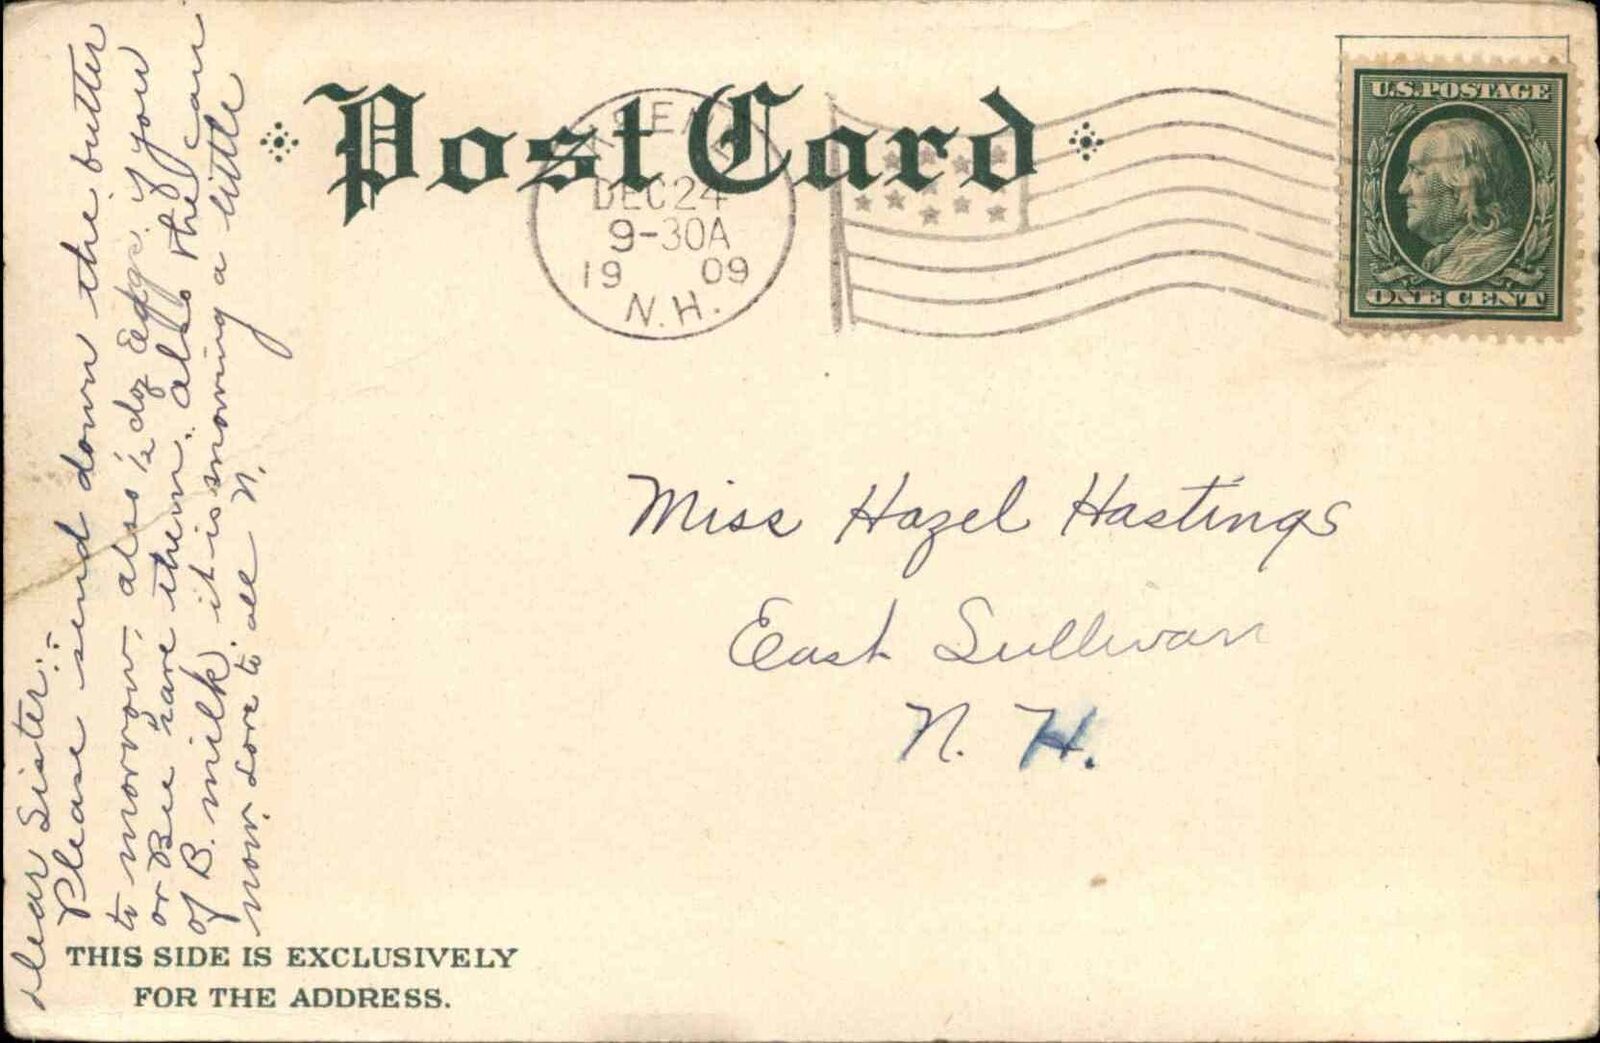 Post Card
DEC 24
9-30A
19 09
N.H.
U.S. POSTAGE
ONE CENT
Dear Sister:-
Please send down the butter
to morrow, also ½ doz Eggs, if you
or Bee have them. also the can
of B. milk, it is snowing a little
now. Love to all N.
Miss Hazel Hastings
East Sullivan
N. H.
THIS SIDE IS EXCLUSIVELY
FOR THE ADDRESS.